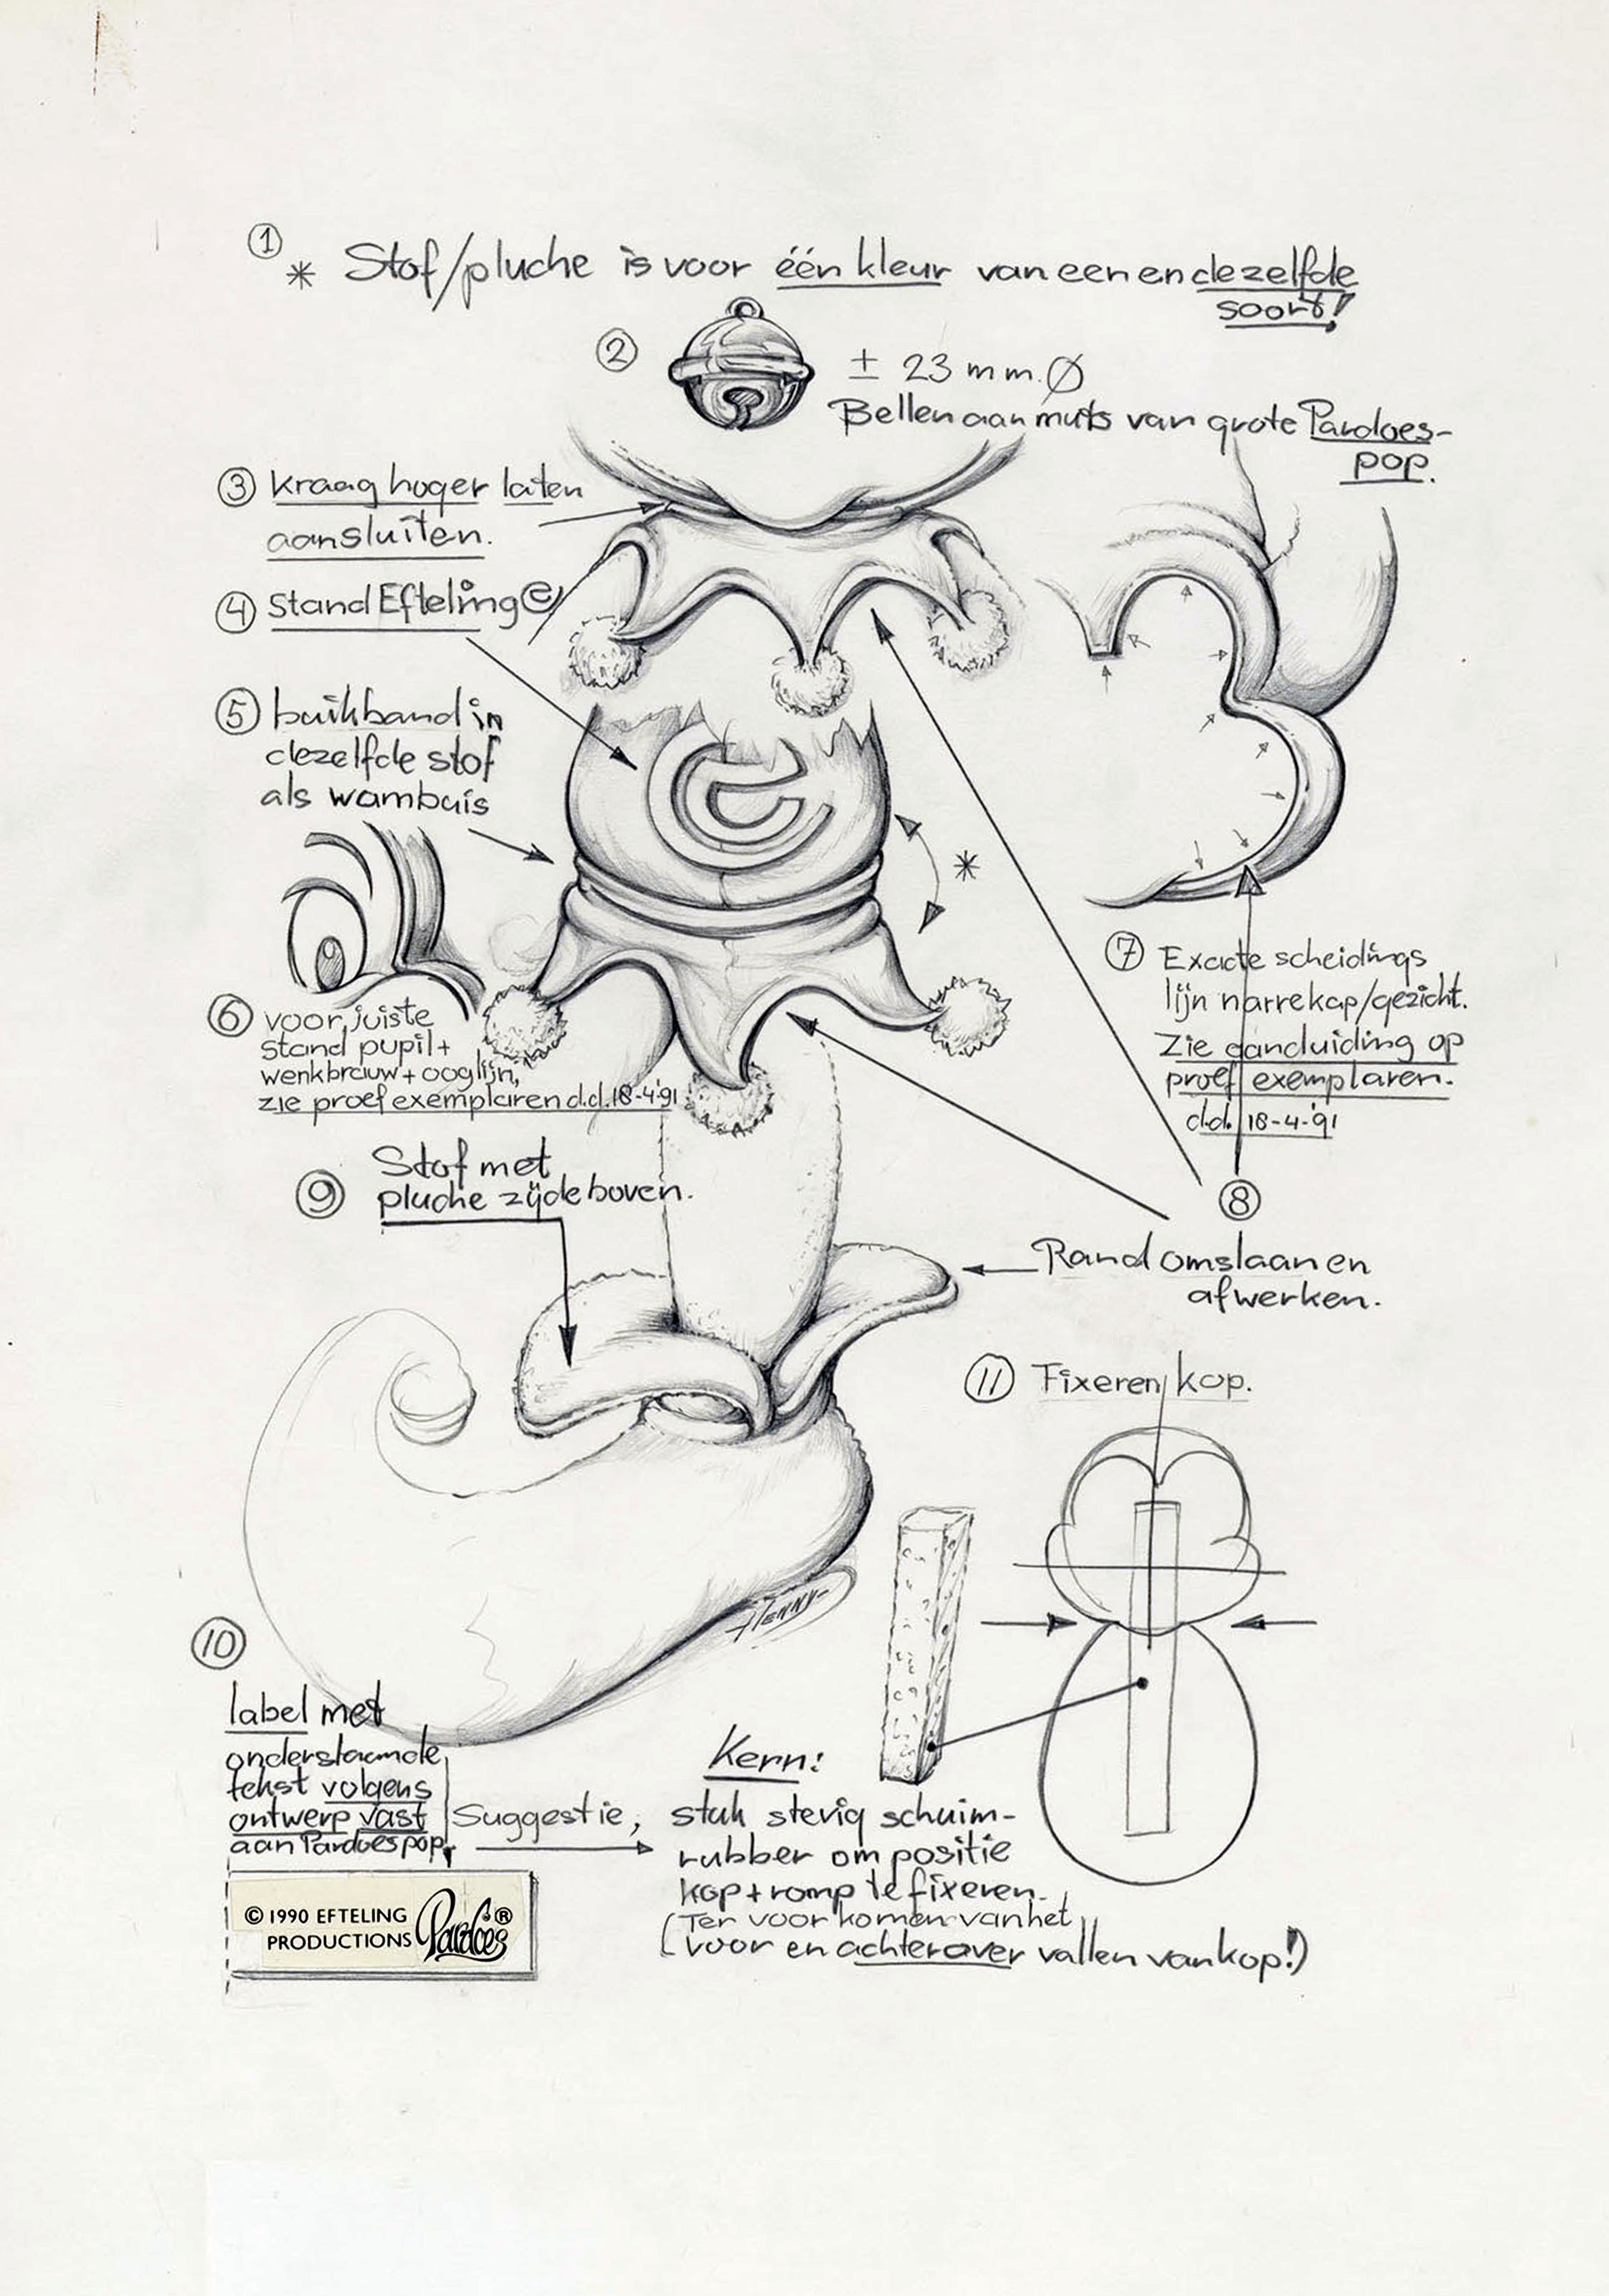 ① * Stof/pluche is voor één kleur van een en dezelfde
soort!
② ± 23 mm. Ø
Bellen aan muts van grote Pardoes-
pop.
③ kraag hoger laten
aansluiten.
④ Stand Efteling e
⑤ buikband in
dezelfde stof
als wambuis
*
⑥ voor juiste
stand pupil +
wenkbrauw + ooglijn,
zie proef exemplaren d.d. 18-4-'91
⑦ Exacte scheidings
lijn narrekap/gezicht.
Zie aanduiding op
proef exemplaren.
d.d. 18-4-'91
⑧
Rand omslaan en
afwerken.
⑨ Stof met
pluche zijde boven.
Henny
⑩
label met
onderstaande
tekst volgens
ontwerp vast
aan Pardoespop.
© 1990 EFTELING
PRODUCTIONS Pardoes ®
⑪ Fixeren kop.
Suggestie,
Kern:
stuk stevig schuim-
rubber om positie
kop + romp te fixeren.
(Ter voorkomen van het
voor en achterover vallen van kop!)